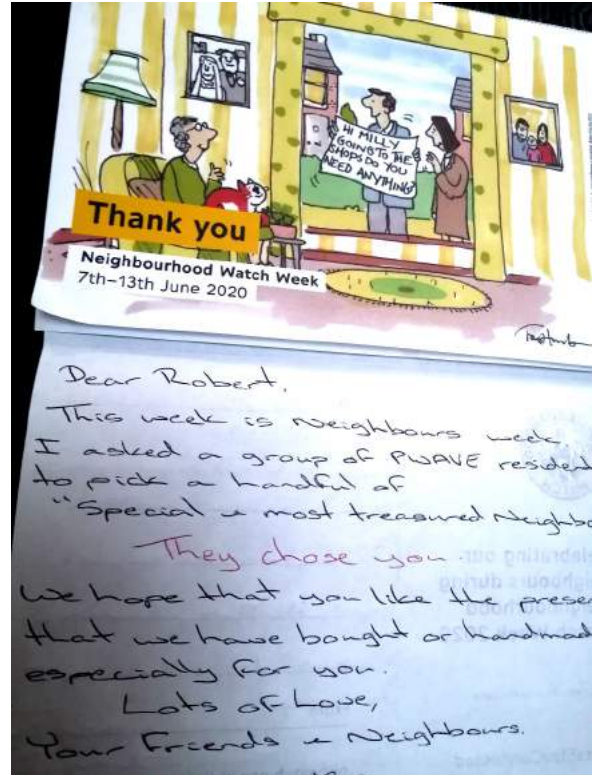 HI MILLY
GOING TO THE
SHOPS DO YOU
NEED ANYTHING?
Thank you
Neighbourhood Watch Week
7th–13th June 2020
Dear Robert,
This week is Neighbours week.
I asked a group of PWAVE resident
to pick a handful of
"Special & most treasured Neighbo
They chose you.
We hope that you like the presen
that we have bought or handmad
especially for you.
Lots of Love,
Your Friends & Neighbours.